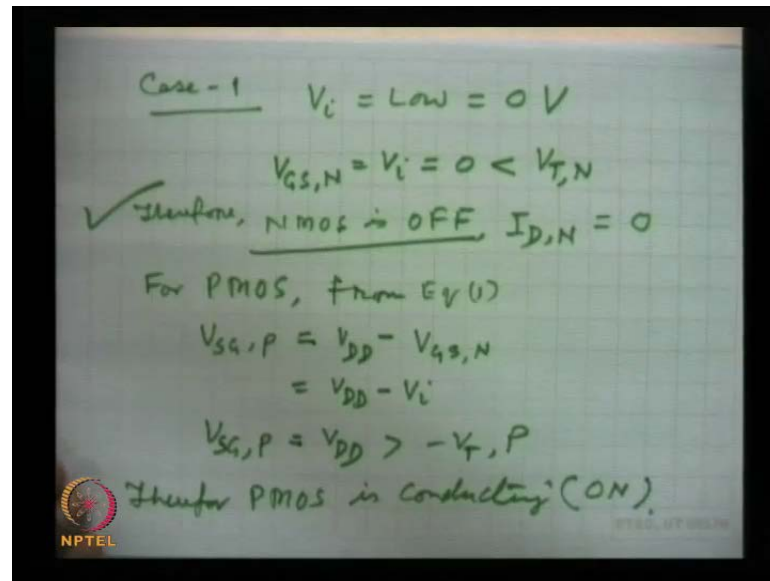 Case-1 Vi = Low = 0 V
VGS,N = Vi = 0 < VT,N
✓ Therefore, NMOS is OFF, ID,N = 0
For PMOS, from Eq (1)
VSG,P = VDD - VGS,N
= VDD - Vi
VSG,P = VDD > -VT,P
Therefor PMOS is conducting (ON).
NPTEL